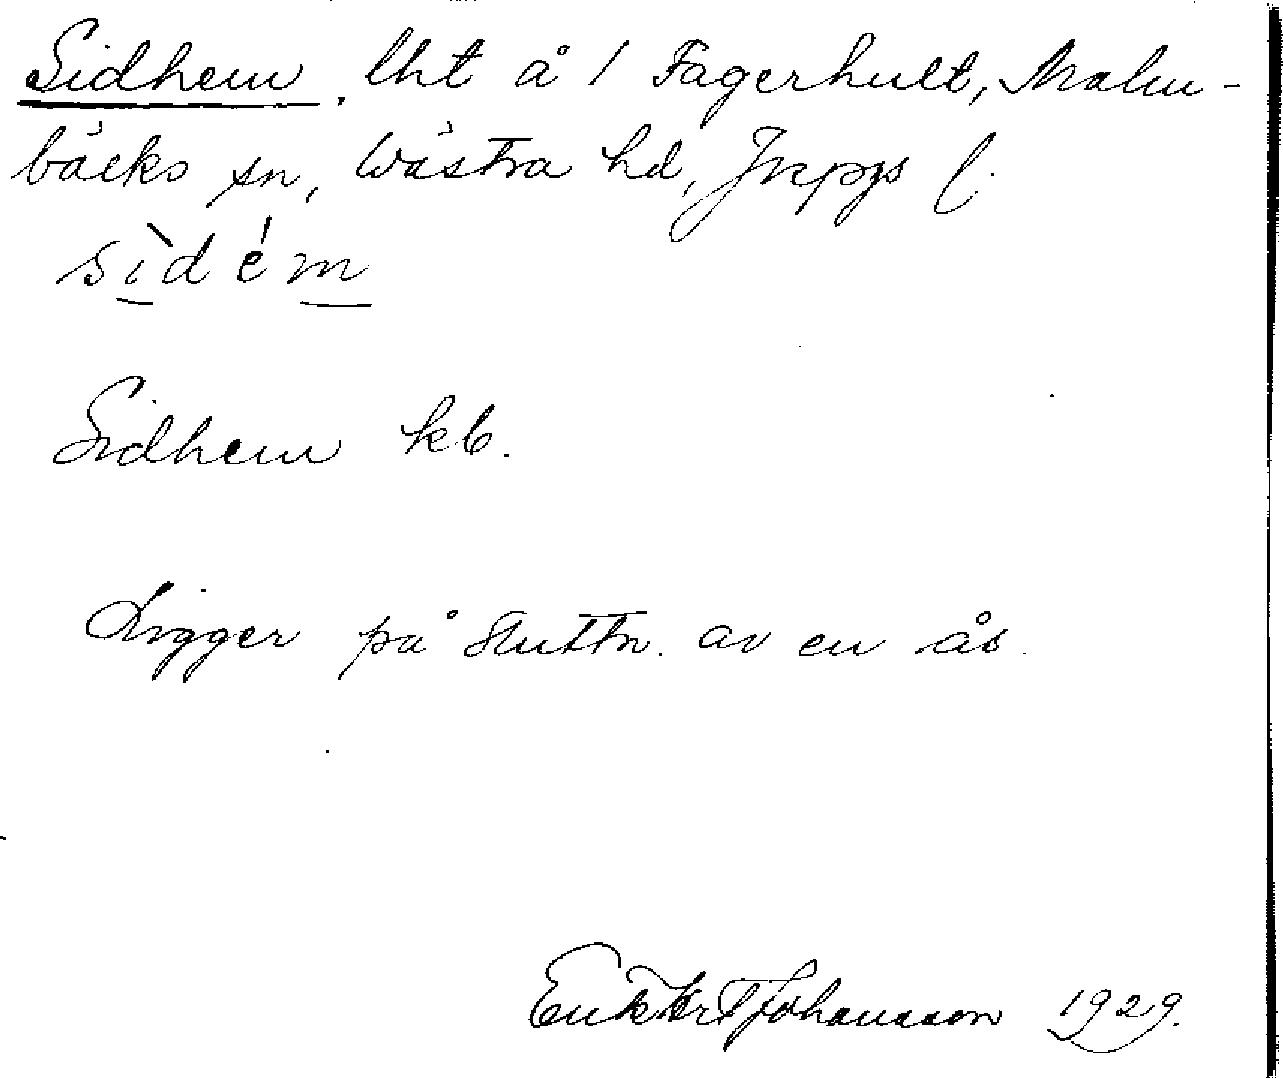 Sidhem, lht å 1 Fagerhult, Malm-
bäcks sn, Västra hd, Jnkpgs l.
sìdém
Sidhem kb.
Ligger på sluttn. av en ås.
Johansson 1929.